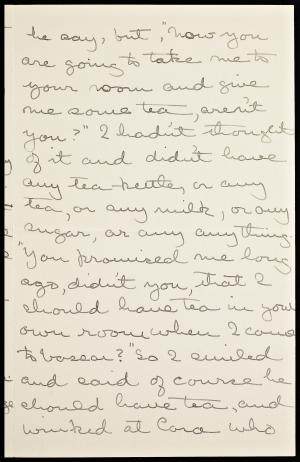 he say, but, "now you
are going to take me to
your room and give
me some tea, aren't
you?" I hadn't thought
of it and didn't have
any tea-kettle, or any
tea, or any milk, or any
sugar, or any anything.
"You promised me long
ago, didn't you, that I
should have tea in your
own room when I came
to Vassar?" So I smiled
and said of course he
should have tea, and
winked at Cora who